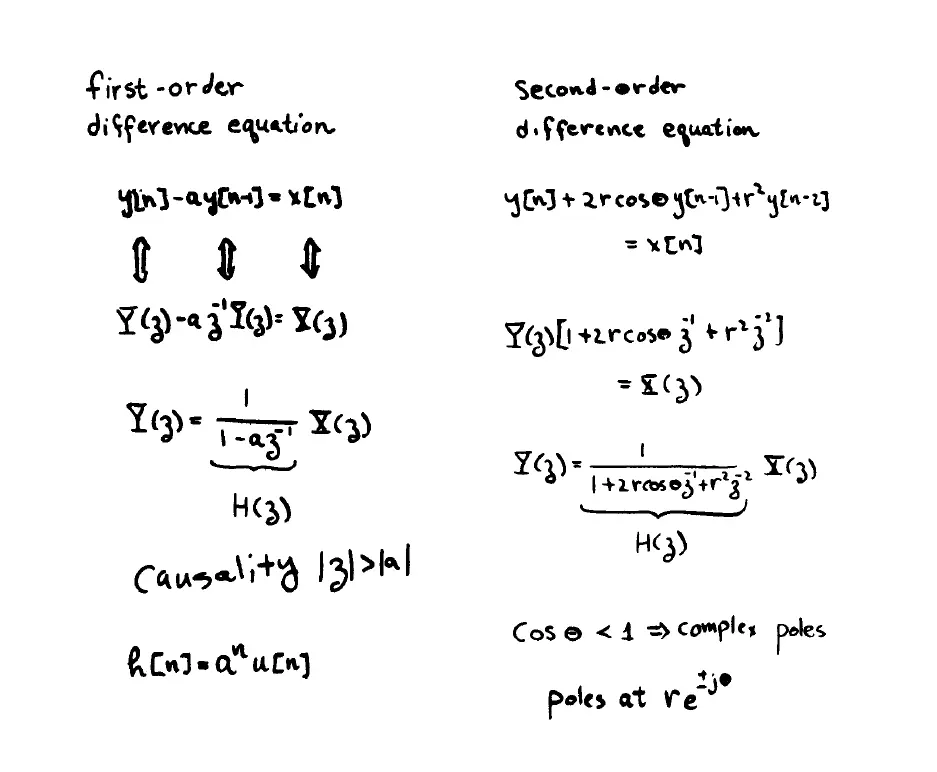 first-order
difference equation
y[n]-ay[n-1]=x[n]
⇕ ⇕ ⇕
Y(z)-az⁻¹Y(z)=X(z)
Y(z)= 1/(1-az⁻¹) X(z)
H(z)
Causality |z|>|a|
h[n]=aⁿu[n]
Second-order
difference equation
y[n]+2rcosθy[n-1]+r²y[n-2]
=x[n]
Y(z)[1+2rcosθz⁻¹+r²z⁻²]
=X(z)
Y(z)= 1/(1+2rcosθz⁻¹+r²z⁻²) X(z)
H(z)
Cosθ<1⇒complex poles
poles at re^±jθ